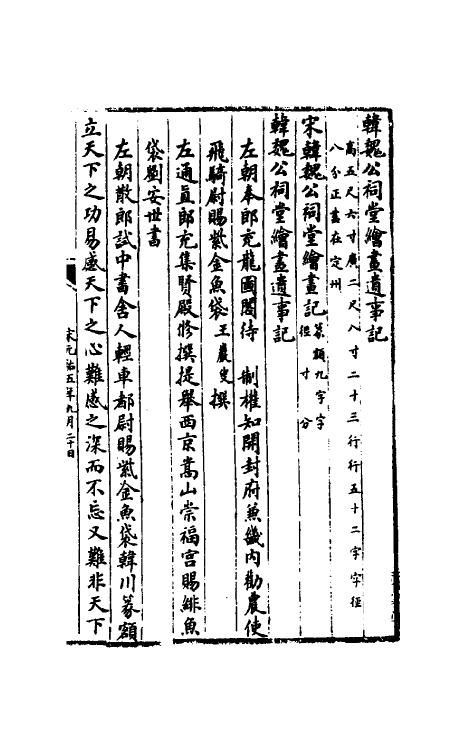 韓魏公祠堂繪畫遺事記
高五尺六寸廣二尺八寸二十三行行五十二字字徑
八分正書在定州
宋韓魏公祠堂繪畫記篆額九字字
徑寸分
韓魏公祠堂繪畫遺事記
左朝奉郎充龍圖閣待 制權知開封府兼畿內勸農使
飛騎尉賜紫金魚袋王巖叟撰
左通直郎充集賢殿修撰提舉西京嵩山崇福宮賜緋魚
袋劉安世書
左朝散郎試中書舍人輕車都尉賜紫金魚袋韓川篆額
立天下之功易感天下之心難感之深而不忘又難非天下
宋元祐五年九月二十日